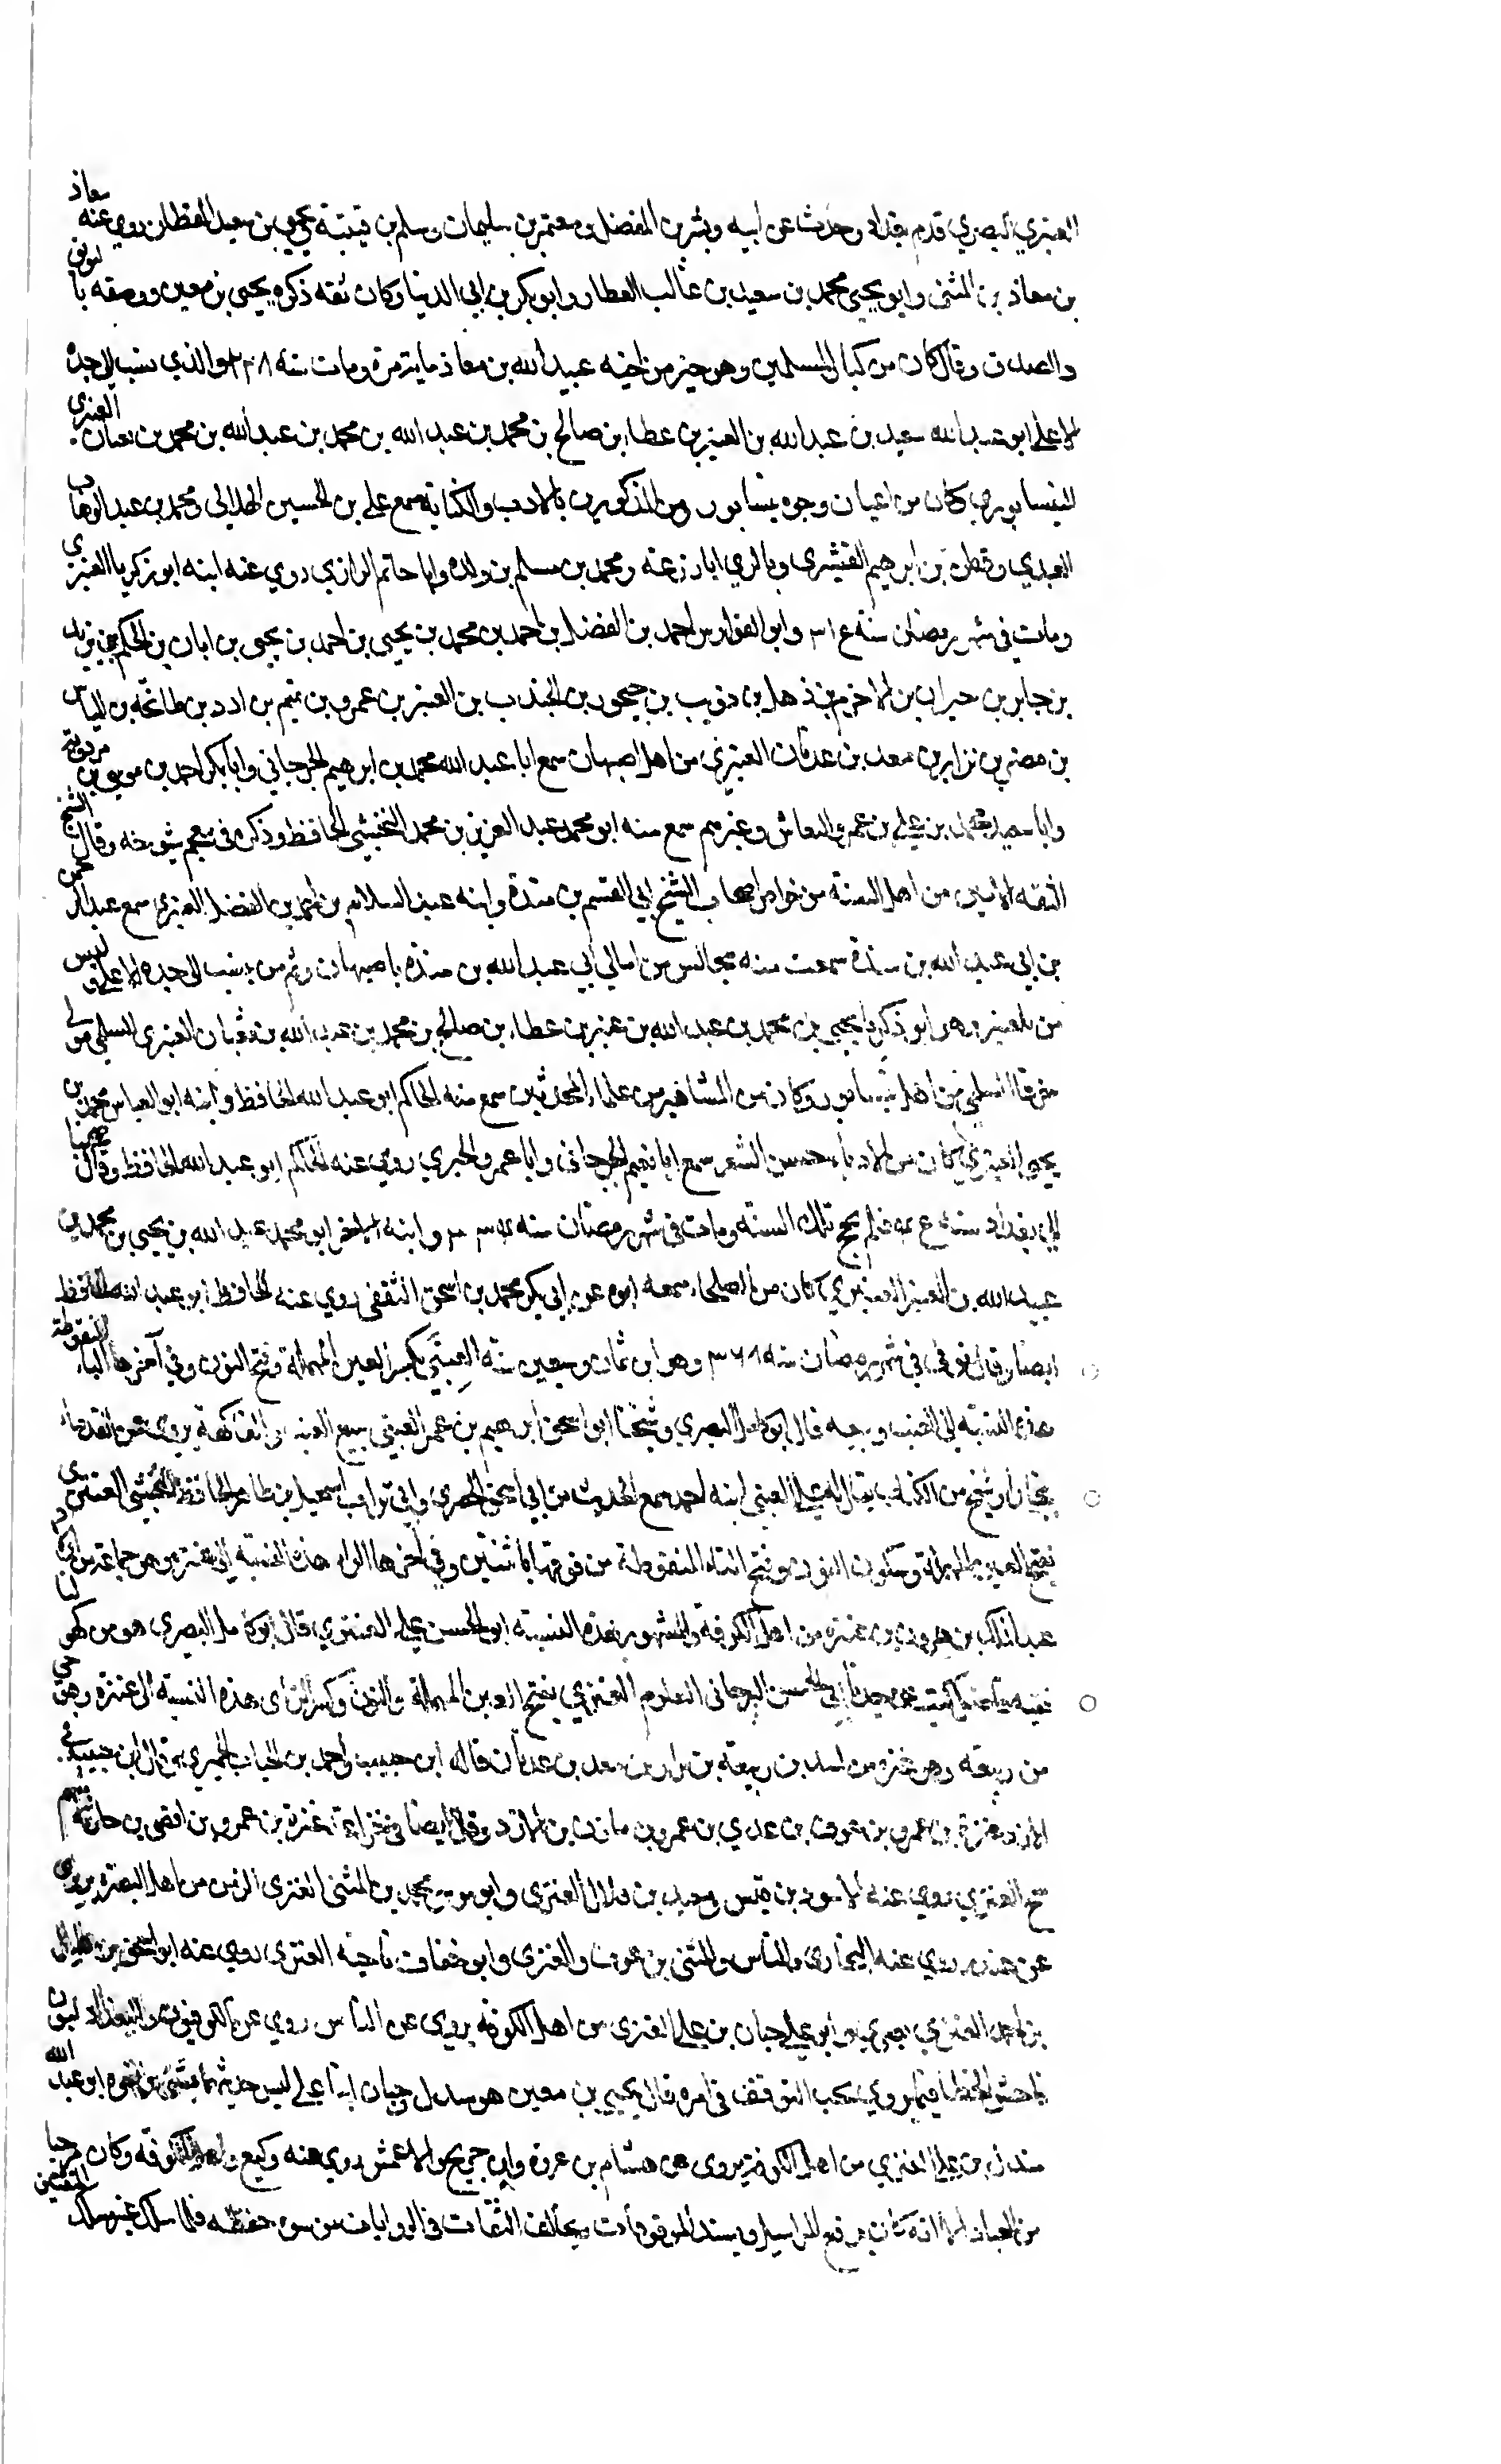 العنبري البصري قدم بغداد وحدث عن ابيه وبشر بن المفضل ومعتمر بن سليمان وسلم بن قتيبة يحيى بن سعيد القطان روي عنه معاذ
بن معاذ بن المثنى وابو يحيى محمد بن سعيد بن غالب العطار وابو بكر بن ابي الدنيا وكان ثقه ذكره يحيى بن معين ووصفه با لتوثق
والصدق وقال كان من كبار المسلمين وهو خير من اخيه عبيد الله بن معاذ ماية مرة ومات سنه ٢٣٨ والذي ينسب الى جده
الاعلى ابو عبد الله سعيد بن عبد الله بن العنبر بن عطاء بن صالح بن محمد بن عبد الله بن محمد بن عبد الله بن محمد بن نعمان العنبري
النيسابوري كان من اعيان وجوه نيسابور ومن المذكورين بالادب والكتابة سمع علي بن الحسين الهلالي ومحمد بن عبد الوهاب
العبدي وقطن بن ابرهيم القشيري وبالري ابا زرعه ومحمد بن مسلم بن واره وابا حاتم الرازي روي عنه ابنه ابو زكريا العنبري
ومات في شهر رمضان سنه ٣١٤ وابو الفوارس احمد بن الفضل بن احمد بن محمد بن يحيى بن احمد بن يحيى بن ابان بن الحكم بن يزيد
بن جابر بن حيران بن الاخزم بن ذهل بن ذويب بن جحود بن الجندب بن العنبر بن عمرو بن تميم بن ادد بن طابخه بن الياس
بن مضر بن نزار بن معد بن عدنان العنبري من اهل اصبهان سمع ابا عبد الله محمد بن ابرهيم الجرجاني وابا بكر احمد بن موسى بن مردويه
وابا سعيد محمد بن علي بن عمرو النعاش وغيرهم سمع منه ابو محمد عبد العزيز بن محمد النخشبي الحافظ وذكره في معجم شيوخه وقال الشيخ
الثقه الامين من اهل السنة من خواص اصحاب الشيخ ابي القسم بن منده وابنه عبد السلام بن احمد بن الفضل العنبري سمع عبد الرحمن
بن ابي عبد الله بن منده سمعت منه مجالس من امالي ابي عبد الله بن منده باصبهان وثم من ينسب الى جده الاعلى وليس
من بلعنبر وهو ابو زكريا يحيى بن محمد بن عبد الله بن عنبر بن عطاء بن صالح بن محمد بن عبد الله بن شعبان العنبري السلمي مولى
السلمي من اهل نيسابور وكان من المشاهير من علماء المحدثين سمع منه الحاكم ابو عبد الله الحافظ وابنه ابو العباس محمد بن
يحيى العنبري كان من الادباء يحسن الشعر سمع ابا نعيم الجرجاني وابا عمرو الحيري روي عنه الحاكم ابو عبد الله الحافظ وقال
الى بغداد سنه فلم يحج تلك السنه ومات في شهر رمضان سنه وابنه الاخر ابو محمد عبد الله بن يحيى بن محمد بن
عبد الله بن العنبر العنبري كان من الصلحاء سمعه ابوه عن ابي بكر محمد بن اسحق الثقفي روي عنه الحافظ ابو عبد الله الحافظ
ايضا وقال توفي في شهر رمضان سنه ٣٦٨ وهو ابن ثمان وسبعين سنة العنبي بكسر العين المهملة وفتح النون وفي آخرها الباء المنقوطة
هذه النسبة الى العنب وبيعه قال ابو كامل البصري وشيخنا ابو اسحق ابرهيم بن عمر العنبي يبيع العنب والفاكهة يروي عن القدماء
ببخارا وشيخ من الكتاب يقال له علي العنبي ابنه احمد سمع الحديث من ابي اسحق الحضري وابي تراب اسمعيل بن طاهر الحافظ النخشبي العنتري
بفتح العين المهملة وسكون النون وفتح التاء المنقوطة من فوقها باثنتين وفي آخرها الراء هذه النسبة الى عنتر وهو جماعة من
عبد الملك بن هرون بن عنتره من اهل الكوفة والمشهور بهذه النسبة ابو الحسن علي العنتري قال ابو كامل البصري هو من
المعلوم العنزي بفتح العين المهملة والنون وكسر الزاى هذه النسبة الى عنزه وهو حي
من ربيعه وهو عنزه من اسد بن ربيعة بن نزار بن معد بن عدنان قاله ابن حبيب واحمد بن الحباب الحميري وقال ابن حبيب في
الازد عنزة بن عمرو بن عوف بن عدي بن عمرو بن مازن بن الازد وقال ايضا في خزاعة عنزة بن عمرو بن افصى بن حارثه
العنزي روي عنه الاسود بن قيس ومعبد بن هلال العنزي وابو موسى محمد بن المثنى العنزي الزمن من اهل البصره يروى
عن غندر روي عنه البخاري والناس والمثنى بن عوف والعنزي وابو خفاف ناجيه العنزي روي عنه ابو اسحق
العنزي بصري وابو علي حبان بن علي العنزي من اهل الكوفه يروى عن الناس روي عنه الكوفيون والبغداديون
فاحش الخطا فيما يروي يجب التوقف في امره قال يحيى بن معين هو مندل وحبان ابنا علي ليس حديثهما بشئ واخوه ابو عبد الله
مندل بن علي العنزي من اهل الكوفة يروى عن هشام بن عروه وابن جريج والاعمش روي عنه وكيع واهل الكوفه وكان مرجيا
من العباد الا انه كان يرفع المراسيل ويسند الموقوفات ويخالف الثقات في الروايات من سوء حفظه فلما سلك غير مسلك المتقين